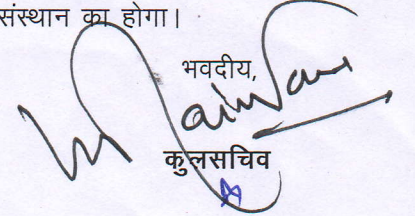 संस्थान का होगा।
भवदीय,
कुलसचिव